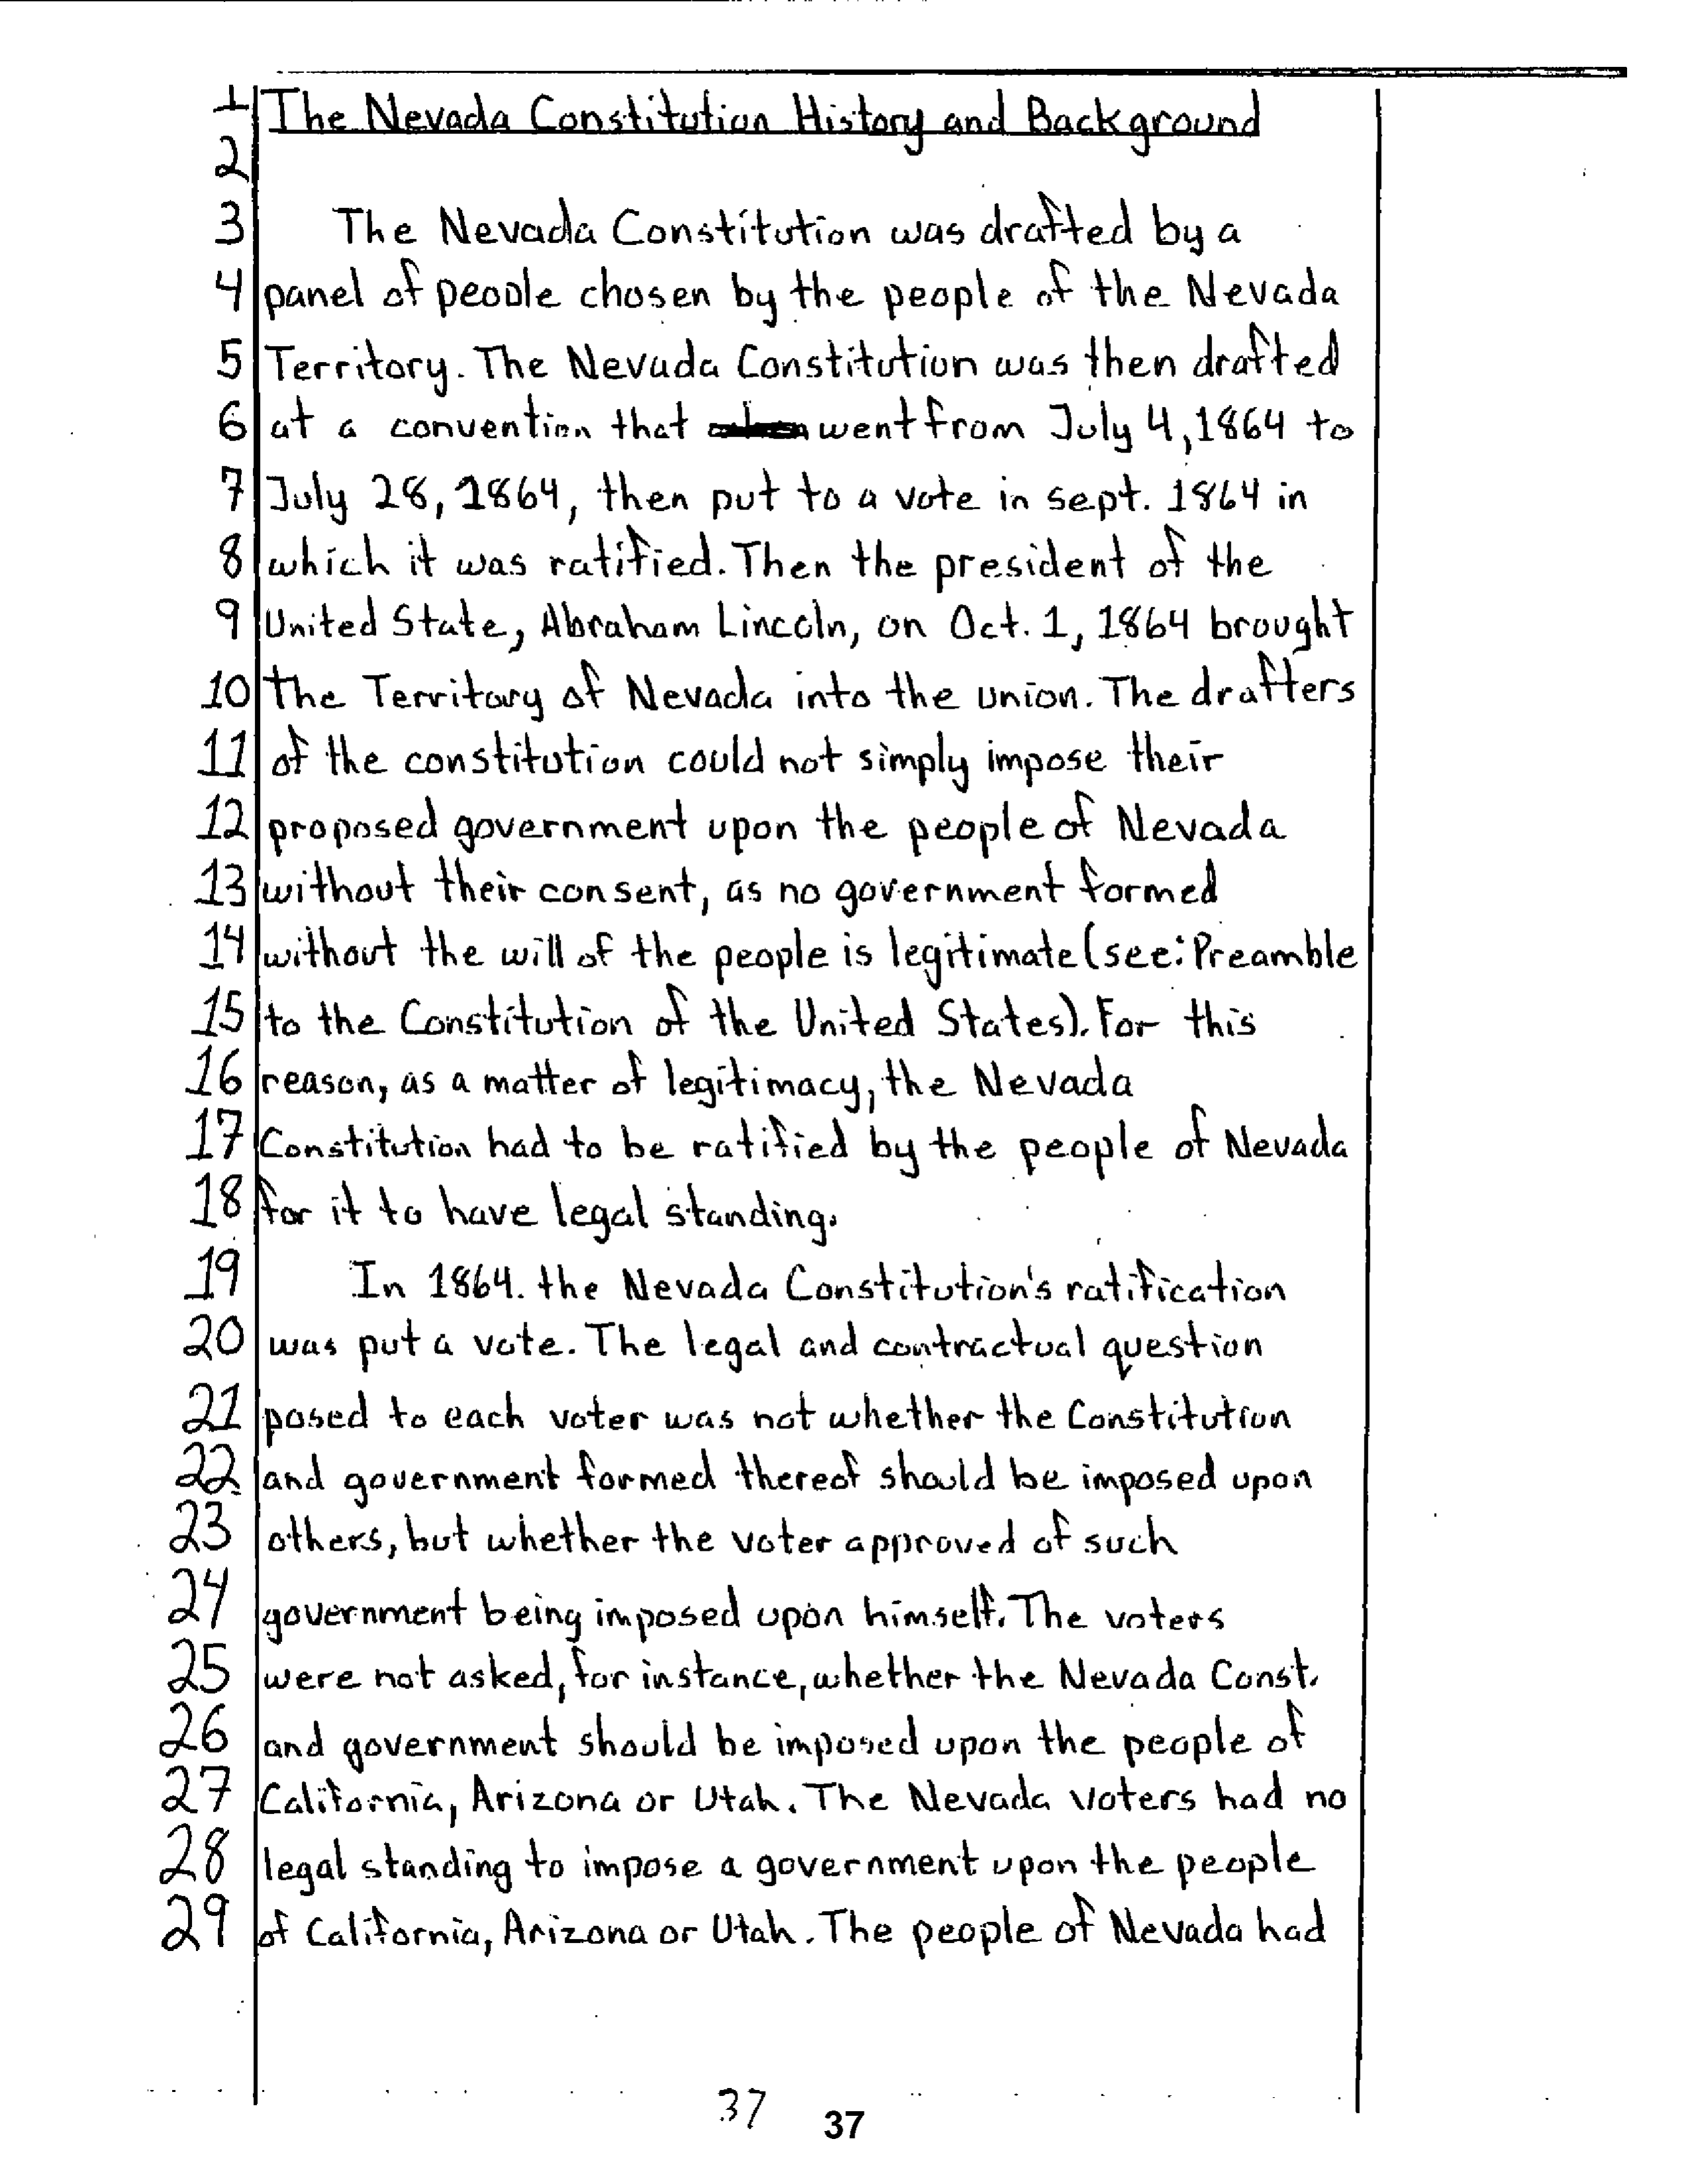 1 The Nevada Constitution History and Background
2
3 The Nevada Constitution was drafted by a
4 panel of people chosen by the people of the Nevada
5 Territory. The Nevada Constitution was then drafted
6 at a convention that went from July 4, 1864 to
7 July 28, 1864, then put to a vote in sept. 1864 in
8 which it was ratified. Then the president of the
9 United State, Abraham Lincoln, on Oct. 1, 1864 brought
10 the Territory of Nevada into the union. The drafters
11 of the constitution could not simply impose their
12 proposed government upon the people of Nevada
13 without their consent, as no government formed
14 without the will of the people is legitimate (see: Preamble
15 to the Constitution of the United States). For this
16 reason, as a matter of legitimacy, the Nevada
17 Constitution had to be ratified by the people of Nevada
18 for it to have legal standing.
19 In 1864. the Nevada Constitution's ratification
20 was put a vote. The legal and contractual question
21 posed to each voter was not whether the Constitution
22 and government formed thereof should be imposed upon
23 others, but whether the voter approved of such
24 government being imposed upon himself. The voters
25 were not asked, for instance, whether the Nevada Const.
26 and government should be imposed upon the people of
27 California, Arizona or Utah. The Nevada voters had no
28 legal standing to impose a government upon the people
29 of California, Arizona or Utah. The people of Nevada had
37 37